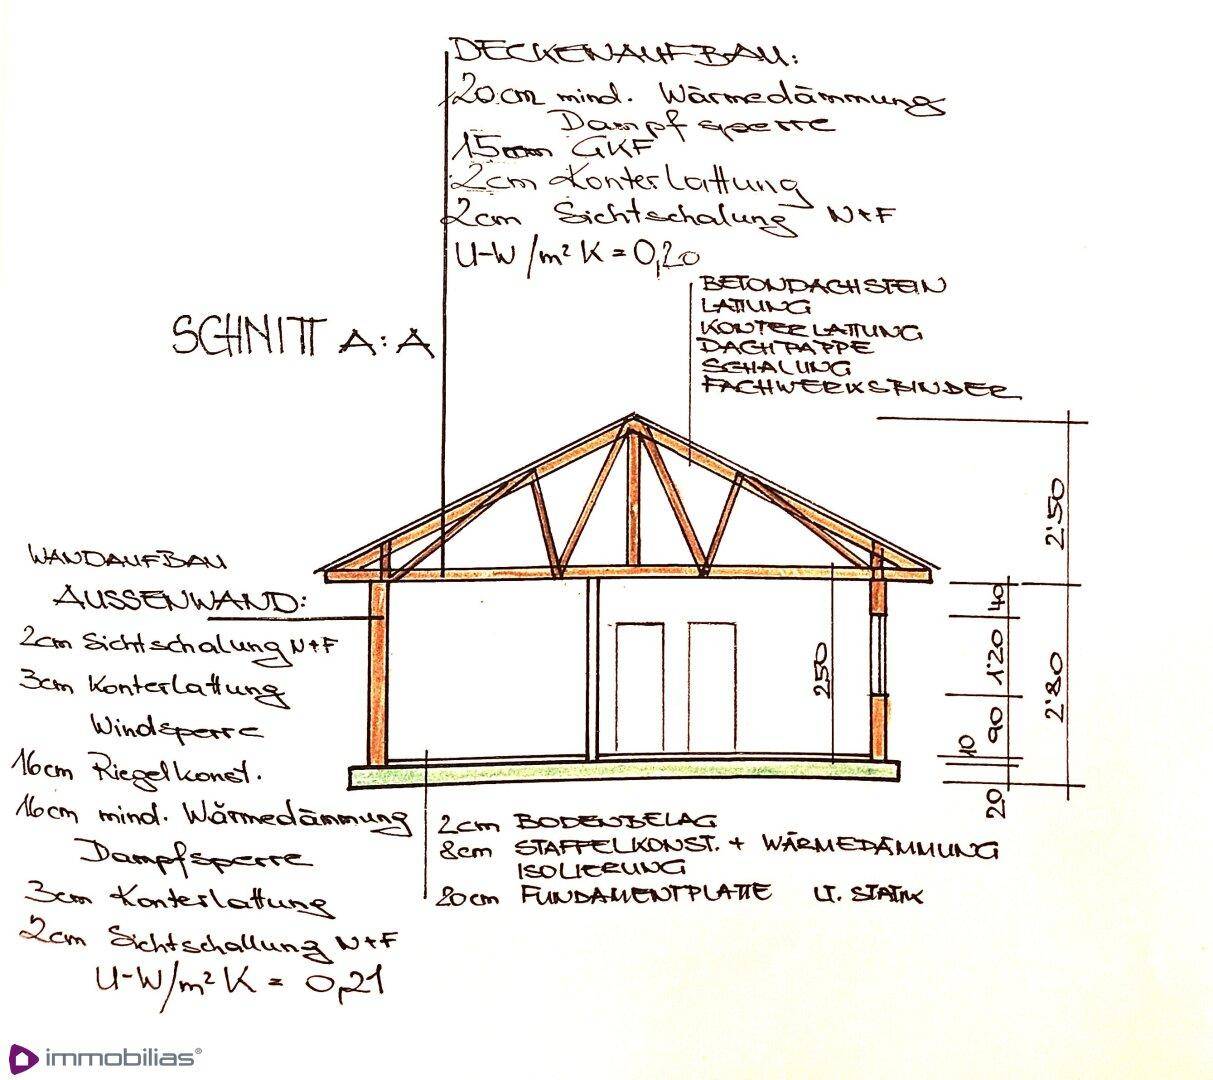 DECKENAUFBAU:
20cm mind. Wärmedämmung
Dampfsperre
15mm GKF
2cm Konterlattung
2cm Sichtschalung N+F
U-W/m² K = 0,20
BETONDACHSTEIN
LATTUNG
KONTERLATTUNG
DACHPAPPE
SCHALUNG
FACHWERKSBINDER
SCHNITT A:A
2'50
WANDAUFBAU
AUSSENWAND:
2cm Sichtschalung N+F
3cm Konterlattung
Windsperre
16cm Riegelkonst.
16cm mind. Wärmedämmung
Dampfsperre
3cm Konterlattung
2cm Sichtschallung N+F
U-W/m² K = 0,21
250
40
1'20
90
10
20
2'80
2cm BODENBELAG
8cm STAFFELKONST. + WÄRMEDÄMMUNG
ISOLIERUNG
20cm FUNDAMENTPLATTE LT. STATIK
immobilias®